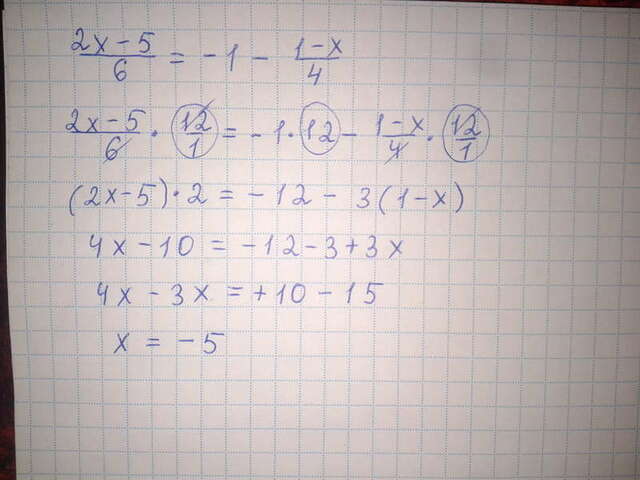 (2x-5)/6 = -1 - (1-x)/4
(2x-5)/6 · 12/1 = -1·12 - (1-x)/4 · 12/1
(2x-5)·2 = -12 - 3(1-x)
4x-10 = -12-3+3x
4x-3x = +10-15
x = -5